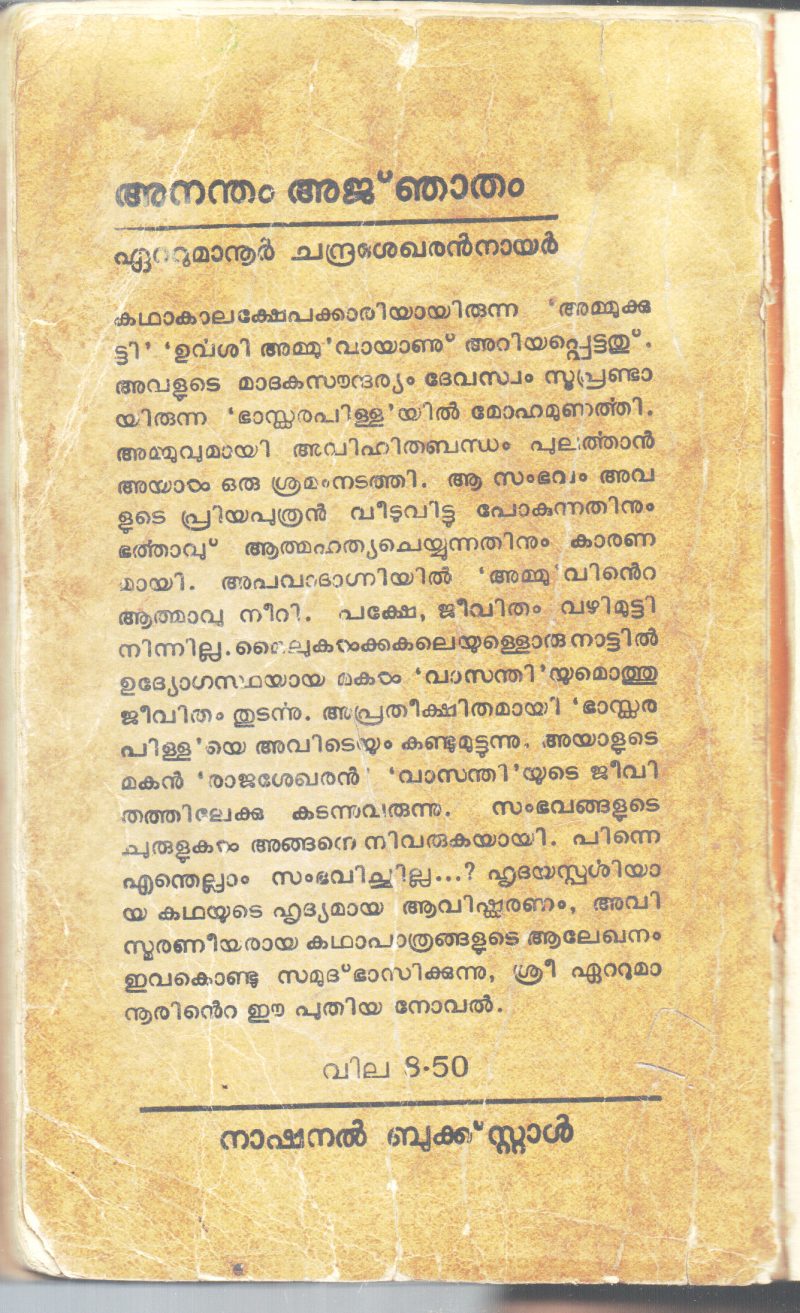 അനന്തം അജ്ഞാതം
ഏററുമാനൂർ ചന്ദ്രശേഖരൻനായർ
കഥാകാലക്ഷേപക്കാരിയായിരുന്ന ‘അമ്മുക്കു
ട്ടി’ ‘ഉർവ്വശി അമ്മു’വായാണു് അറിയപ്പെട്ടതു്.
അവളുടെ മാദകസൗന്ദര്യം ദേവസ്വം സൂപ്രണ്ടാ
യിരുന്ന ‘ഭാസ്കരപിള്ള’യിൽ മോഹമുണർത്തി.
അമ്മുവുമായി അവിഹിതബന്ധം പുലർത്താൻ
അയാൾ ഒരു ശ്രമംനടത്തി. ആ സംഭവം അവ
ളുടെ പ്രിയപുത്രൻ വീടുവിട്ടു പോകുന്നതിനും
ഭർത്താവു് ആത്മഹത്യചെയ്യുന്നതിനും കാരണ
മായി. അപവാദാഗ്നിയിൽ ‘അമ്മു’വിൻെറ
ആത്മാവു നീറി. പക്ഷേ, ജീവിതം വഴിമുട്ടി
നിന്നില്ല. മൈലുകൾക്കകലെയുള്ളൊരു നാട്ടിൽ
ഉദ്യോഗസ്ഥയായ മകൾ ‘വാസന്തി’യുമൊത്തു
ജീവിതം തുടർന്നു. അപ്രതീക്ഷിതമായി ‘ഭാസ്കര
പിള്ള’യെ അവിടെയും കണ്ടുമുട്ടുന്നു. അയാളുടെ
മകൻ ‘രാജശേഖരൻ’ ‘വാസന്തി’യുടെ ജീവി
തത്തിലേക്കു കടന്നുവരുന്നു. സംഭവങ്ങളുടെ
ചുരുളുകൾ അങ്ങനെ നിവരുകയായി. പിന്നെ
എന്തെല്ലാം സംഭവിച്ചില്ല...? ഹൃദയസ്പർശിയാ
യ കഥയുടെ ഹൃദ്യമായ ആവിഷ്കരണം, അവി
സ്മരണീയരായ കഥാപാത്രങ്ങളുടെ ആലേഖനം
ഇവകൊണ്ടു സമുദ്ഭാസിക്കുന്നു, ശ്രീ ഏററൂമാ
നൂരിൻെറ ഈ പുതിയ നോവൽ.
വില 8·50
നാഷനൽ ബുക്ക്സ്റ്റാൾ